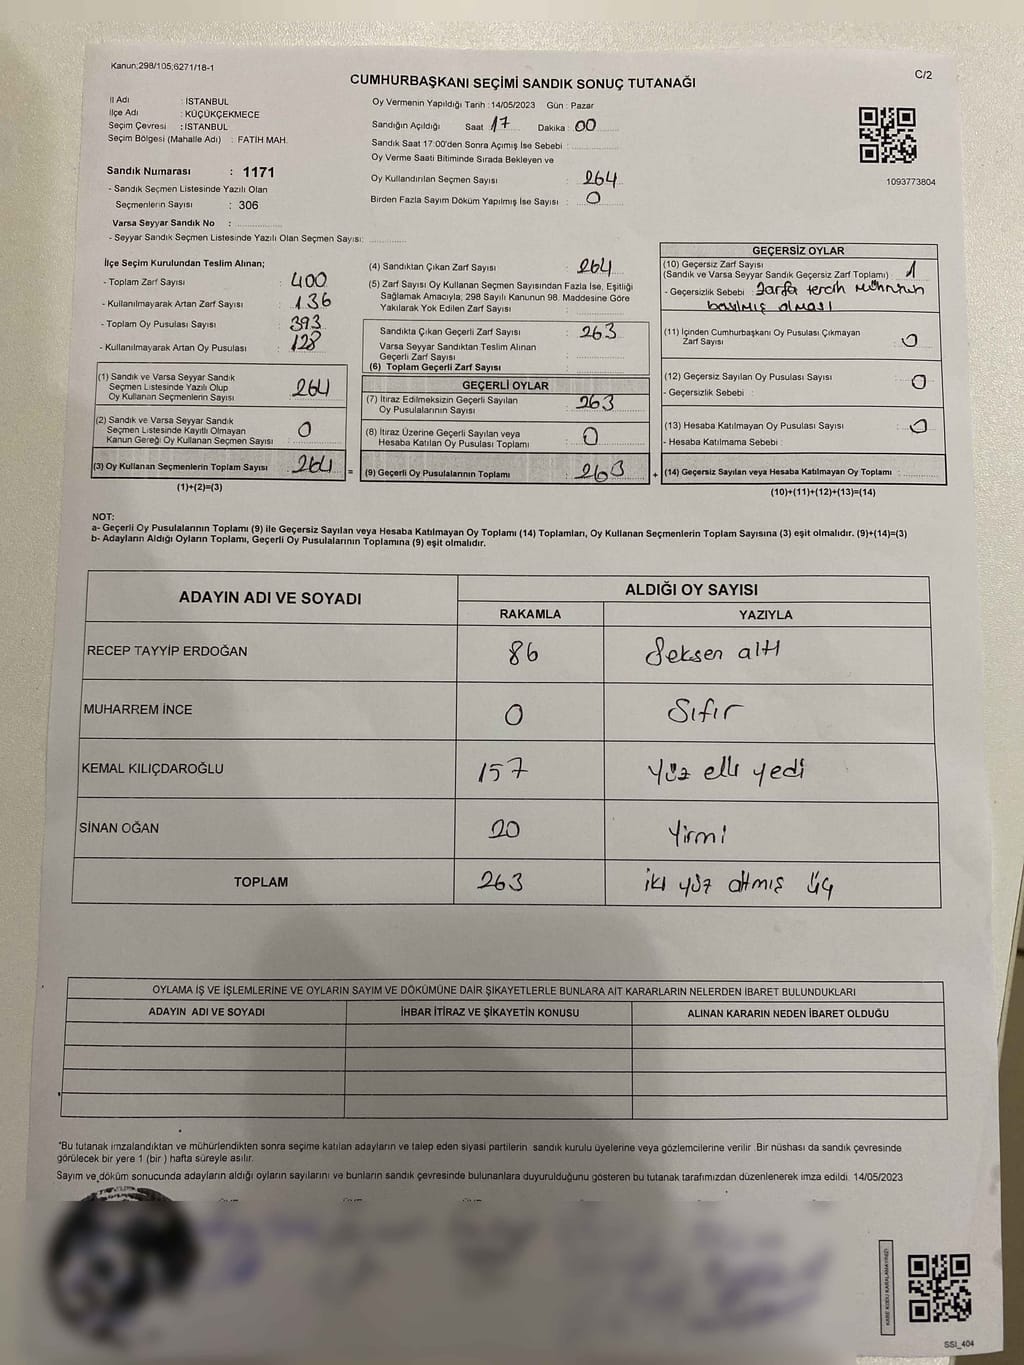 Kanun;298/105;6271/18-1
C/2
CUMHURBAŞKANI SEÇİMİ SANDIK SONUÇ TUTANAĞI
İl Adı : İSTANBUL
İlçe Adı : KÜÇÜKÇEKMECE
Seçim Çevresi : İSTANBUL
Seçim Bölgesi (Mahalle Adı) : FATİH MAH.
Sandık Numarası : 1171
- Sandık Seçmen Listesinde Yazılı Olan
Seçmenlerin Sayısı : 306
Varsa Seyyar Sandık No :
- Seyyar Sandık Seçmen Listesinde Yazılı Olan Seçmen Sayısı:
Oy Vermenin Yapıldığı Tarih : 14/05/2023 Gün : Pazar
Sandığın Açıldığı Saat 17 Dakika : 00
Sandık Saat 17:00'den Sonra Açımış İse Sebebi :
Oy Verme Saati Bitiminde Sırada Bekleyen ve
Oy Kullandırılan Seçmen Sayısı : 264
Birden Fazla Sayım Döküm Yapılmış İse Sayısı : 0
1093773804
İlçe Seçim Kurulundan Teslim Alınan;
- Toplam Zarf Sayısı : 400
- Kullanılmayarak Artan Zarf Sayısı : 136
- Toplam Oy Pusulası Sayısı : 393
- Kullanılmayarak Artan Oy Pusulası : 128
(1) Sandık ve Varsa Seyyar Sandık
Seçmen Listesinde Yazılı Olup
Oy Kullanan Seçmenlerin Sayısı : 264
(2) Sandık ve Varsa Seyyar Sandık
Seçmen Listesinde Kayıtlı Olmayan
Kanun Gereği Oy Kullanan Seçmen Sayısı : 0
(3) Oy Kullanan Seçmenlerin Toplam Sayısı : 264 =
(1)+(2)=(3)
(4) Sandıktan Çıkan Zarf Sayısı : 264
(5) Zarf Sayısı Oy Kullanan Seçmen Sayısından Fazla İse, Eşitliği
Sağlamak Amacıyla; 298 Sayılı Kanunun 98. Maddesine Göre
Yakılarak Yok Edilen Zarf Sayısı :
Sandıkta Çıkan Geçerli Zarf Sayısı : 263
Varsa Seyyar Sandıktan Teslim Alınan
Geçerli Zarf Sayısı :
(6) Toplam Geçerli Zarf Sayısı :
GEÇERLİ OYLAR
(7) İtiraz Edilmeksizin Geçerli Sayılan
Oy Pusulalarının Sayısı : 263
(8) İtiraz Üzerine Geçerli Sayılan veya
Hesaba Katılan Oy Pusulası Toplamı : 0
(9) Geçerli Oy Pusulalarının Toplamı : 263 +
GEÇERSİZ OYLAR
(10) Geçersiz Zarf Sayısı
(Sandık ve Varsa Seyyar Sandık Geçersiz Zarf Toplamı) : 1
- Geçersizlik Sebebi : Zarfa tercih mührünün
basılmış olması
(11) İçinden Cumhurbaşkanı Oy Pusulası Çıkmayan
Zarf Sayısı : 0
(12) Geçersiz Sayılan Oy Pusulası Sayısı : 0
- Geçersizlik Sebebi :
(13) Hesaba Katılmayan Oy Pusulası Sayısı : 0
- Hesaba Katılmama Sebebi :
(14) Geçersiz Sayılan veya Hesaba Katılmayan Oy Toplamı :
(10)+(11)+(12)+(13)=(14)
NOT:
a- Geçerli Oy Pusulalarının Toplamı (9) ile Geçersiz Sayılan veya Hesaba Katılmayan Oy Toplamı (14) Toplamları, Oy Kullanan Seçmenlerin Toplam Sayısına (3) eşit olmalıdır. (9)+(14)=(3)
b- Adayların Aldığı Oyların Toplamı, Geçerli Oy Pusulalarının Toplamına (9) eşit olmalıdır.
ADAYIN ADI VE SOYADI ALDIĞI OY SAYISI
RAKAMLA YAZIYLA
RECEP TAYYİP ERDOĞAN 86 Seksen altı
MUHARREM İNCE 0 Sıfır
KEMAL KILIÇDAROĞLU 157 Yüz elli yedi
SİNAN OĞAN 20 Yirmi
TOPLAM 263 iki yüz altmış üç
OYLAMA İŞ VE İŞLEMLERİNE VE OYLARIN SAYIM VE DÖKÜMÜNE DAİR ŞİKAYETLERLE BUNLARA AİT KARARLARIN NELERDEN İBARET BULUNDUKLARI
ADAYIN ADI VE SOYADI İHBAR İTİRAZ VE ŞİKAYETİN KONUSU ALINAN KARARIN NEDEN İBARET OLDUĞU
*Bu tutanak imzalandıktan ve mühürlendikten sonra seçime katılan adayların ve talep eden siyasi partilerin sandık kurulu üyelerine veya gözlemcilerine verilir. Bir nüshası da sandık çevresinde
görülecek bir yere 1 (bir) hafta süreyle asılır.
Sayım ve döküm sonucunda adayların aldığı oyların sayılarını ve bunların sandık çevresinde bulunanlara duyurulduğunu gösteren bu tutanak tarafımızdan düzenlenerek imza edildi. 14/05/2023
KARE KODU KARALAMAYINIZ!
SSI_404